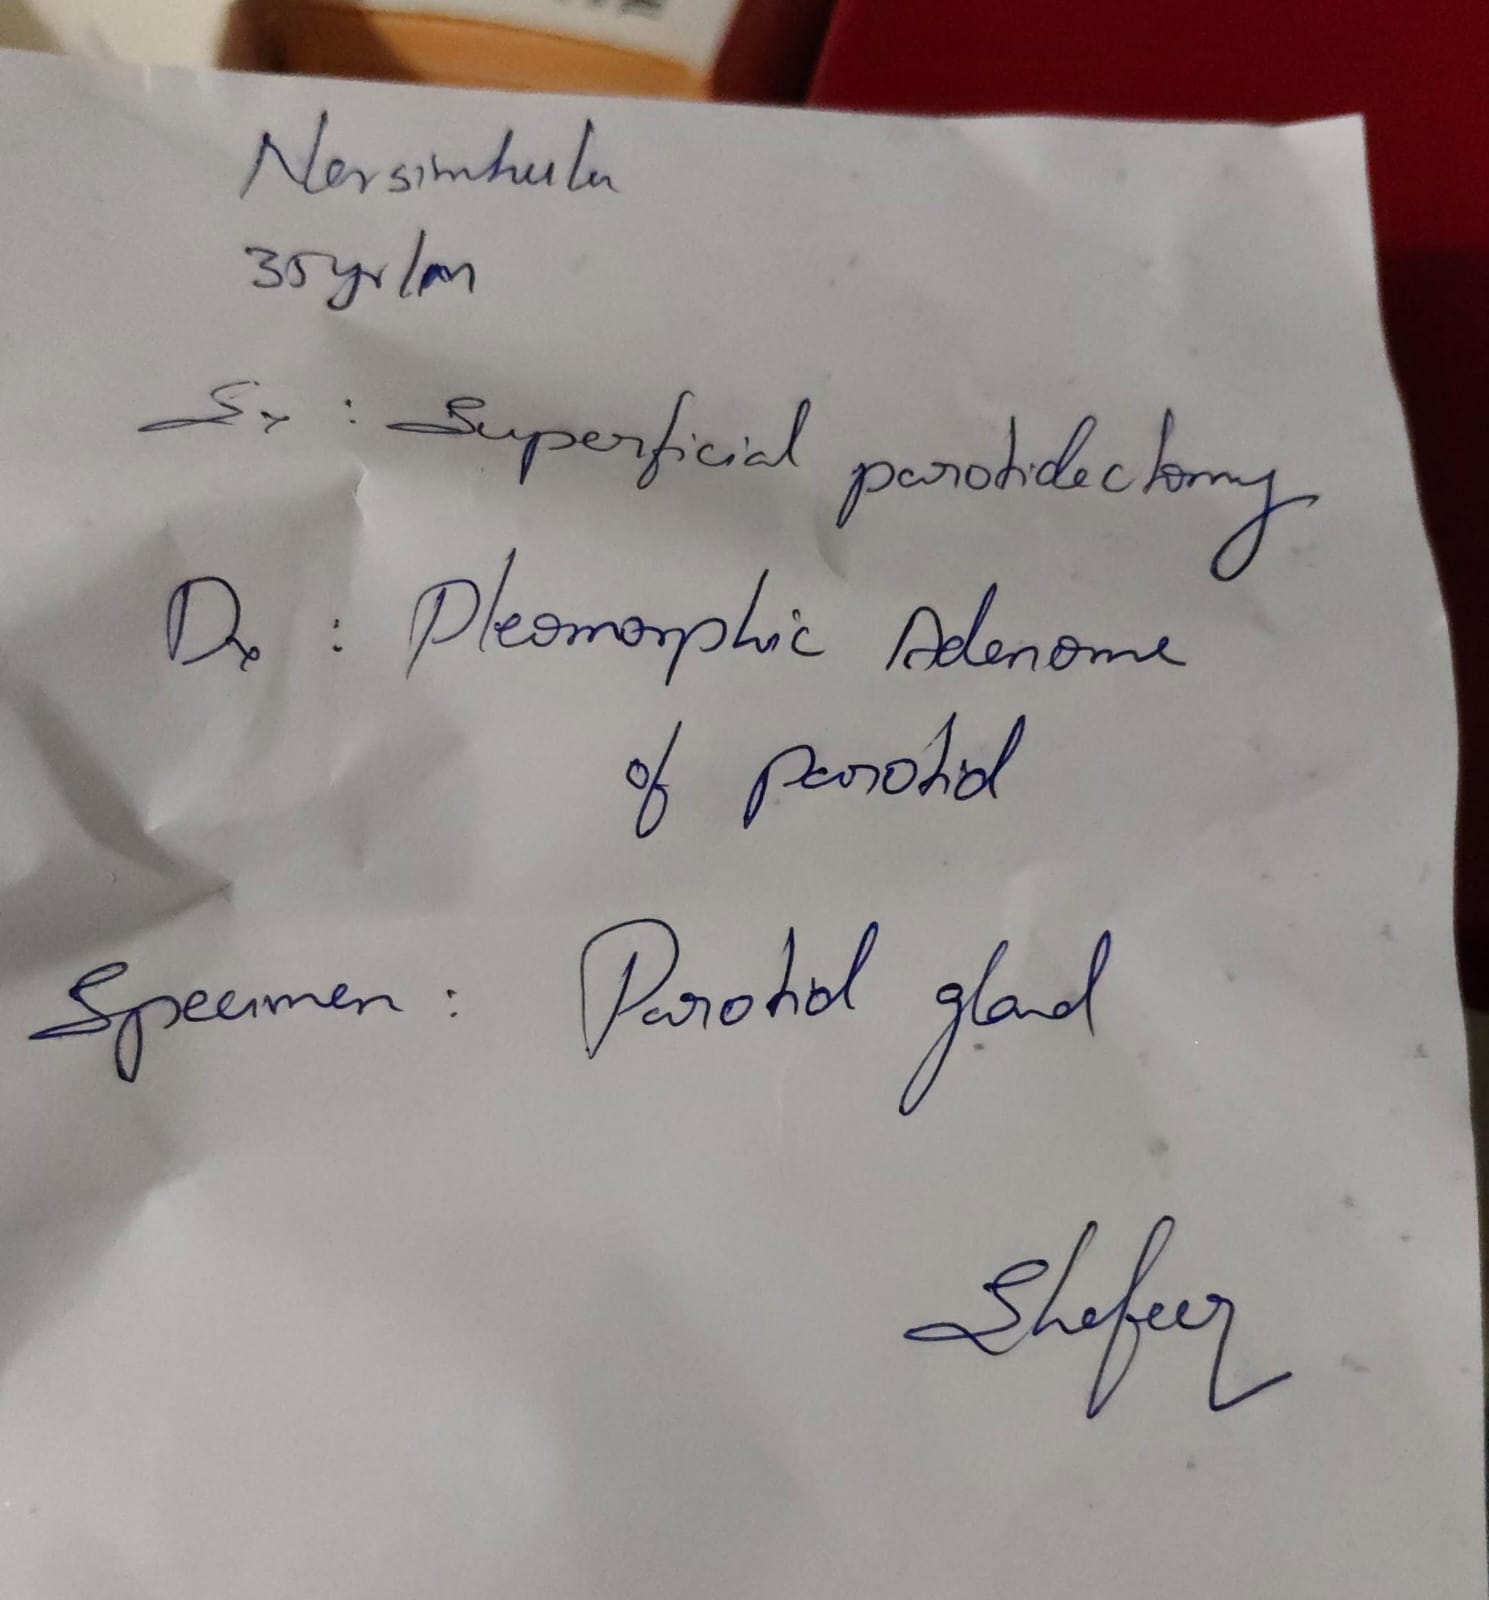 Narsimhulu
35yr/m
Sx : Superficial parotidectomy
Dx : Pleomorphic Adenoma
of parotid
Specimen : Parotid gland
Shafeer